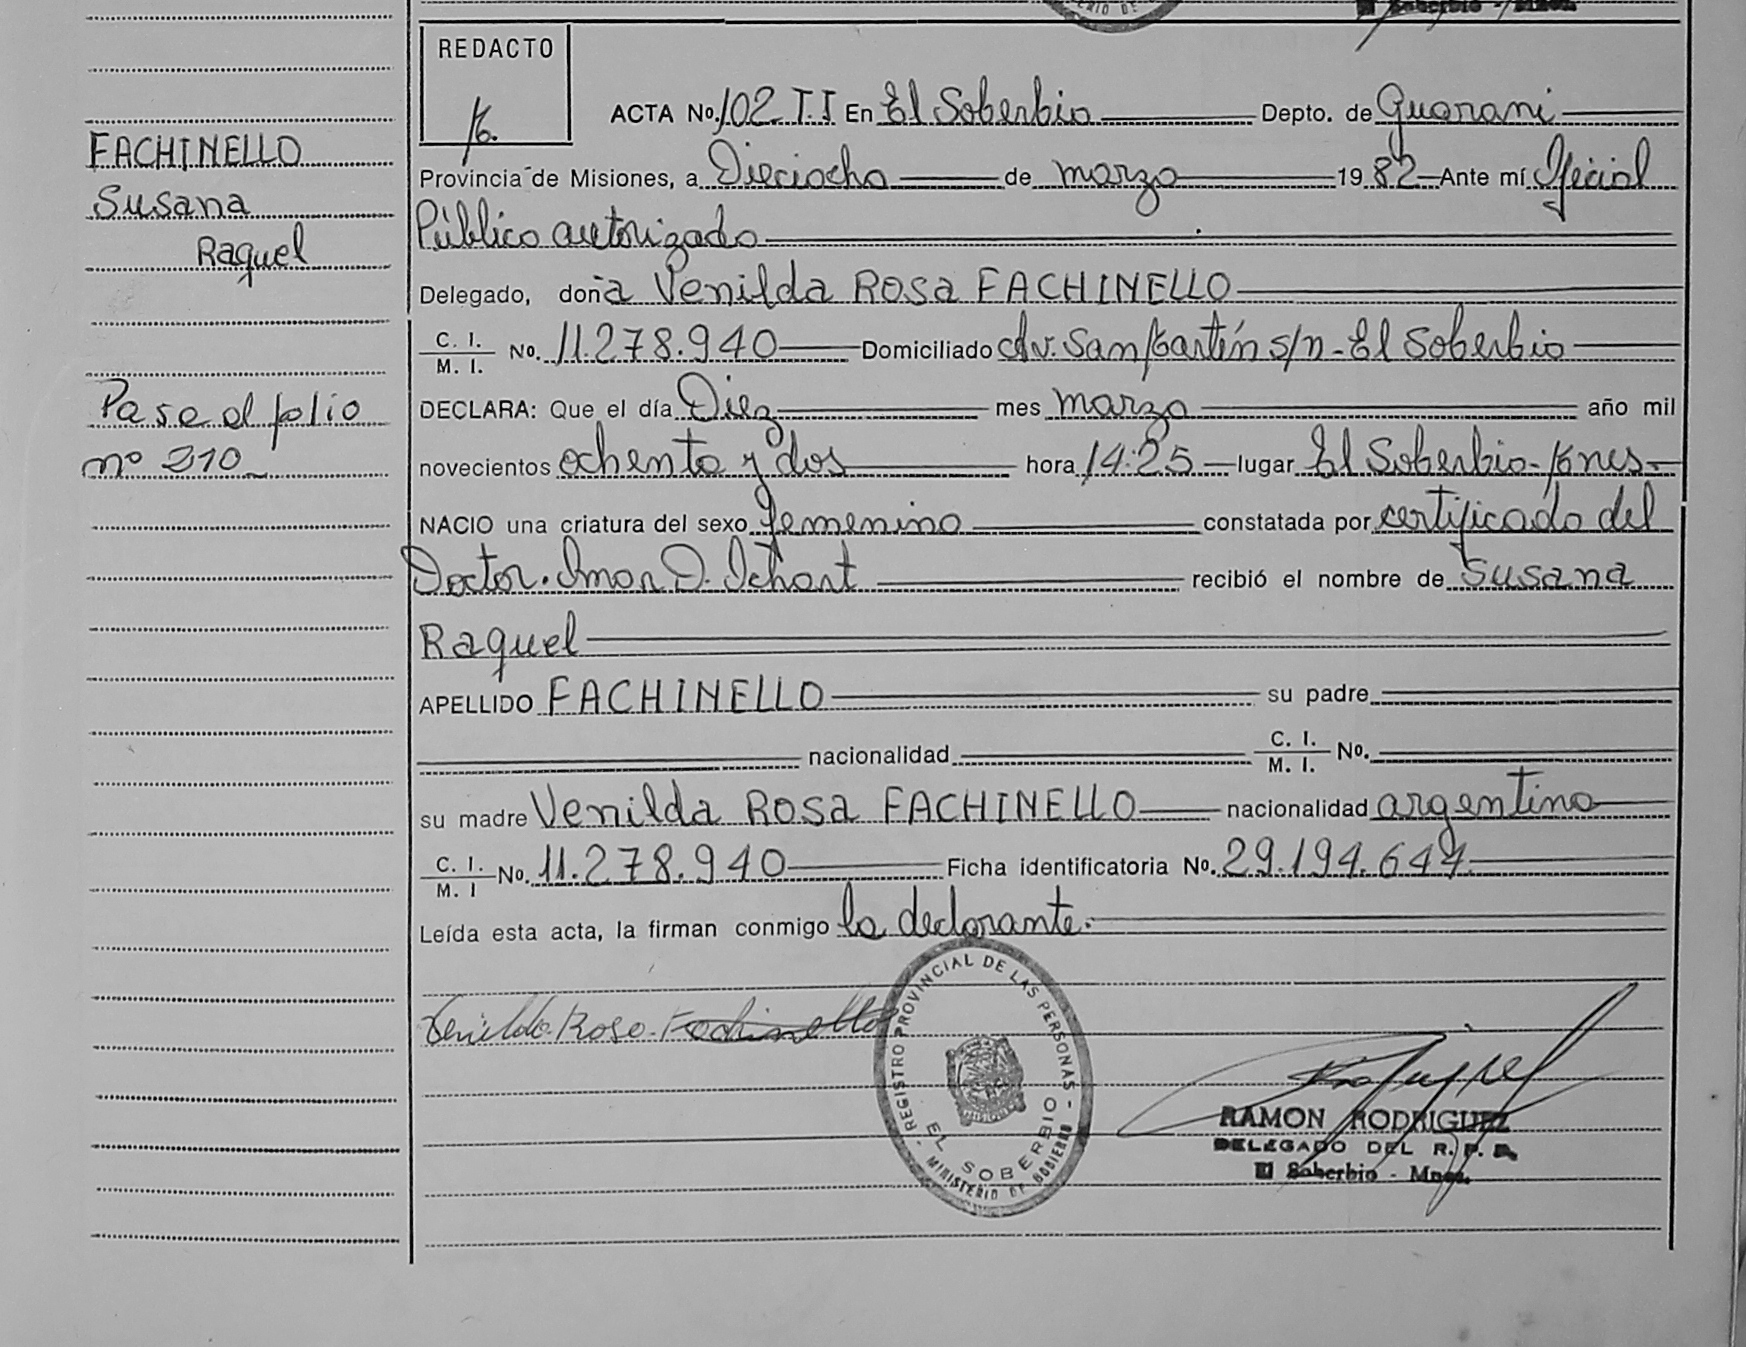 El Soberbio - Mnes.
REDACTO
ACTA No. 102 T.I En El Soberbio Depto. de Guarani
FACHINELLO
Provincia de Misiones, a Dieciocho de marzo 19 82 Ante mí Oficial
Susana
Público autorizado
Raquel
Delegado, doña Venilda Rosa FACHINELLO
C. I.
M. I. No. 11.278.940 Domiciliado Av. San Martín s/n - El Soberbio
Pase al folio
DECLARA: Que el día Diez mes marzo año mil
nº 210
novecientos ochenta y dos hora 14:25 lugar El Soberbio - Mnes -
NACIO una criatura del sexo femenino constatada por certificado del
Doctor. Omar D. recibió el nombre de Susana
Raquel
APELLIDO FACHINELLO su padre
nacionalidad C. I.
M. I. No.
su madre Venilda Rosa FACHINELLO nacionalidad argentina
C. I.
M. I No. 11.278.940 Ficha identificatoria No. 29.194.647
Leída esta acta, la firman conmigo la declarante.
Venilda Rosa Fachinello
- REGISTRO PROVINCIAL DE LAS PERSONAS -
EL SOBERBIO
MINISTERIO DE GOBIERNO
RAMON RODRIGUEZ
DELEGADO DEL R. P. P.
El Soberbio - Mnes.